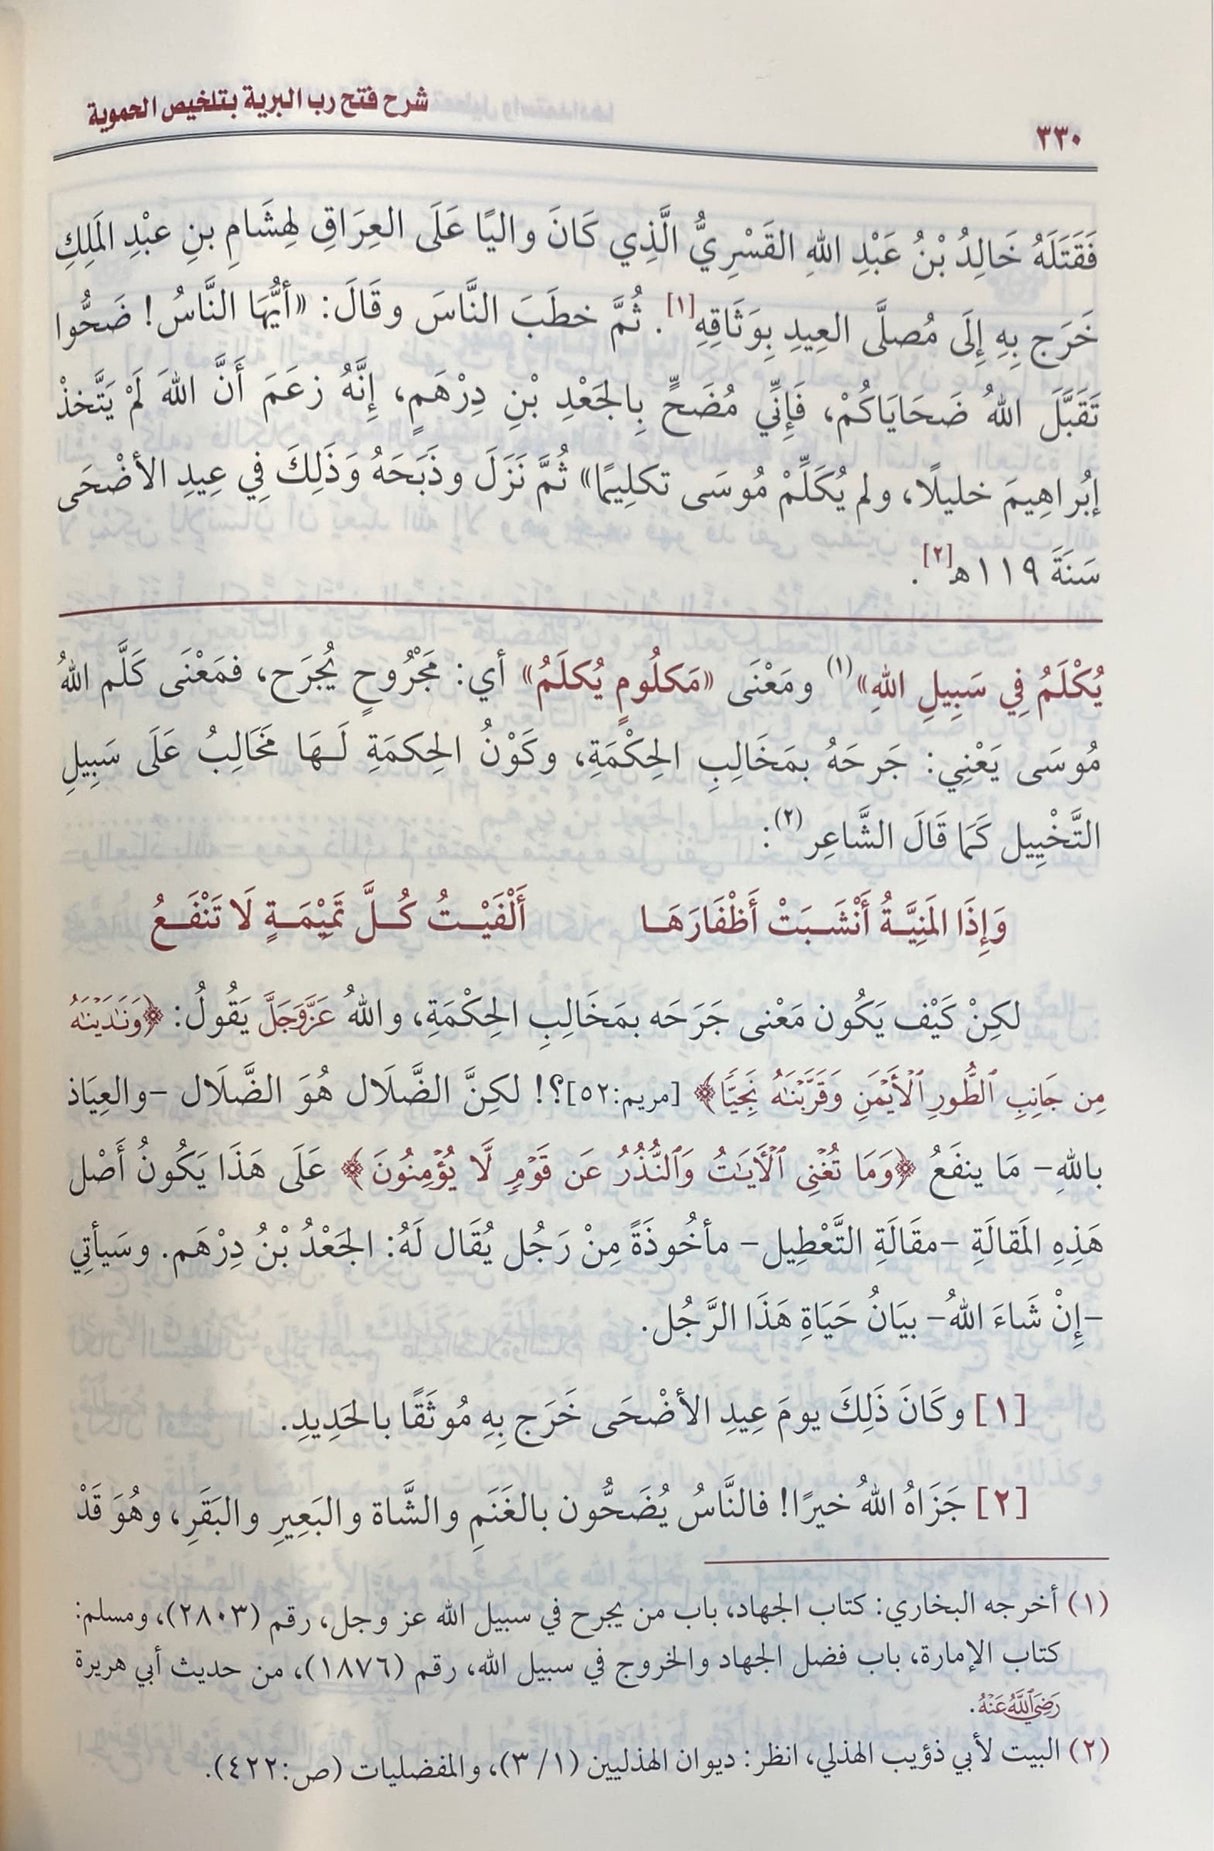 شرح فتح رب البرية بتلخيص الحموية
٣٣٠
فَقَتَلَهُ خَالِدُ بْنُ عَبْدِ اللهِ القَسْرِيُّ الَّذِي كَانَ واليًا عَلَى العِرَاقِ لِهِشَامِ بنِ عبْدِ المَلِكِ
خَرَج بِهِ إِلَى مُصلَّى العِيدِ بِوَثَاقِهِ[١]. ثُمَّ خطَبَ النَّاسَ وقَالَ: «أيُّهَا النَّاسُ! ضَحُّوا
تَقَبَّلَ اللهُ ضَحَايَاكُمْ، فَإِنِّي مُضَحٍّ بِالجَعْدِ بْنِ دِرْهَمٍ، إِنَّهُ زعَمَ أَنَّ اللهَ لَمْ يَتَّخذْ
إبْراهِيمَ خليلًا، ولم يُكَلِّمْ مُوسَى تكلِيمًا» ثُمَّ نَزَلَ وذَبَحَهُ وَذَلِكَ فِي عِيدِ الأضْحَى
سَنَةَ ١١٩هـ[٢].
يُكْلَمُ فِي سَبِيلِ اللهِ»(١) ومَعْنَى «مَكلُومٍ يُكلَمُ» أي: مَجْرُوحٍ يُجرَح، فمَعْنَى كَلَّم اللهُ
مُوسَى يَعْنِي: جَرحَهُ بمَخَالِبِ الحِكْمَةِ، وكَوْنُ الحِكمَةِ لَـهَا مَخَالِبُ عَلَى سَبِيلِ
التَّخْيِيل كَمَا قَالَ الشَّاعِر(٢):
وَإِذَا المَنِيَّـةُ أَنْشَـبَتْ أَظْفَارَهَـا أَلْفَيْـتُ كُـلَّ تَمِيْمَـةٍ لَا تَنْفَـعُ
لكِنْ كَيْف يَكُون مَعْنى جَرَحَه بمَخَالِبِ الحِكْمَةِ، واللهُ عَزَّوَجَلَّ يَقُولُ: ﴿وَنَٰدَيۡنَٰهُ
مِن جَانِبِ ٱلطُّورِ ٱلۡأَيۡمَنِ وَقَرَّبۡنَٰهُ نَجِيًّا﴾ [مريم:٥٢]؟! لكِنَّ الضَّلَال هُوَ الضَّلَال -والعِيَاذ
باللهِ- مَا ينفَعُ ﴿وَمَا تُغۡنِى ٱلۡأٓيَٰتُ وَٱلنُّذُرُ عَن قَوۡمٖ لَّا يُؤۡمِنُونَ﴾ عَلَى هَذَا يَكُونُ أَصْل
هَذِهِ المَقَالَةِ -مقَالَةِ التَّعْطِيل- مأخُوذَةً مِنْ رَجُل يُقَال لَهُ: الجَعْدُ بْنُ دِرْهَم. وسَيأتِي
-إِنْ شَاءَ اللهُ- بيَانُ حَيَاةِ هَذَا الرَّجُل.
[١] وكَانَ ذَلِكَ يومَ عِيدِ الأضْحَى خَرَج بِهِ مُوثَقًا بالحَدِيدِ.
[٢] جَزَاهُ اللهُ خيرًا! فالنَّاسُ يُضَحُّون بالغَنَمِ والشَّاة والبَعِيرِ والبَقَرِ، وهُوَ قَدْ
(١) أخرجه البخاري: كتاب الجهاد، باب من يجرح في سبيل الله عز وجل، رقم (٢٨٠٣)، ومسلم:
كتاب الإمارة، باب فضل الجهاد والخروج في سبيل الله، رقم (١٨٧٦)، من حديث أبي هريرة
رَضِيَ اللَّهُ عَنْهُ.
(٢) البيت لأبي ذؤيب الهذلي، انظر: ديوان الهذليين (١/ ٣)، والمفضليات (ص:٤٢٢).